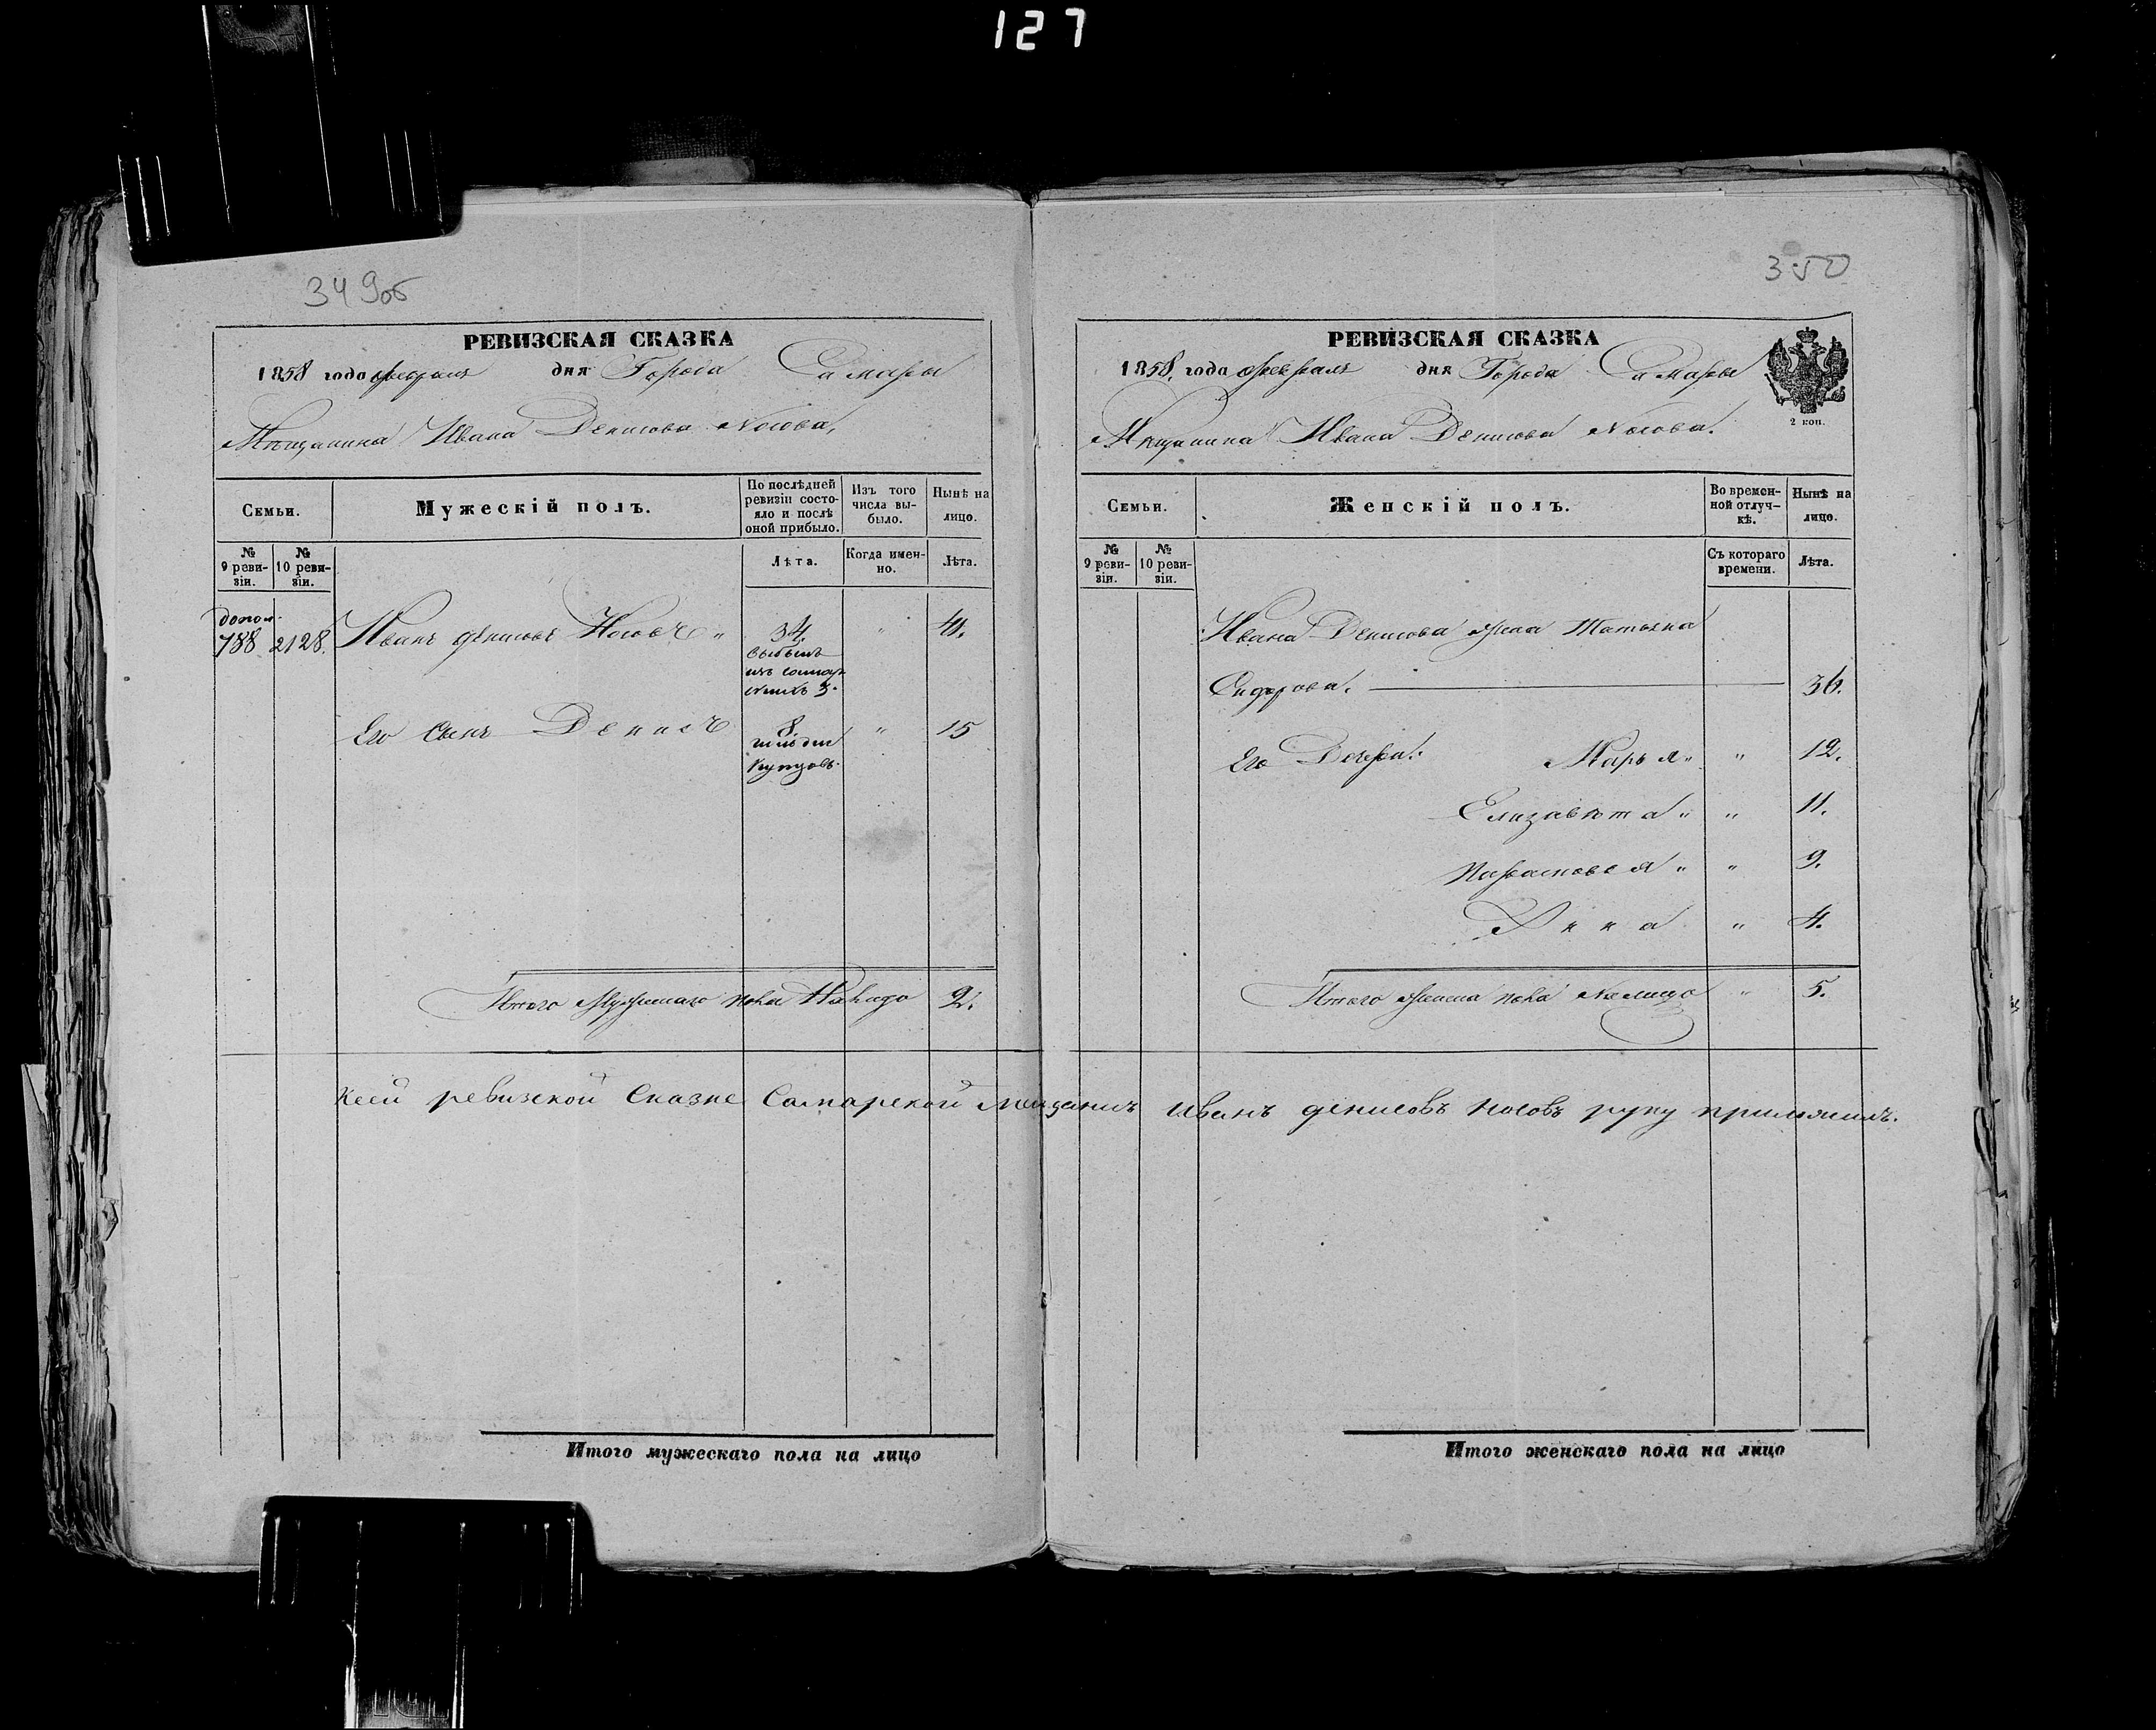 127
349об
РЕВИЗСКАЯ СКАЗКА
1858 года февраля дня Города Самары
Мѣщанина Ивана Денисова Носова,
Семьи.
Мужескій полъ.
По послѣдней ревизіи состо-
яло и послѣ оной прибыло.
Изъ того числа вы-
было.
Нынѣ на лицо.
№ 9 реви-
зіи.
№ 10 реви-
зіи.
Лѣта.
Когда имен-
но.
Лѣта.
допол.
788 2128. Иванъ Денисовъ Носовъ „ 34. „ 41.
выбылъ
изъ
3.
Его сынъ Денисъ 8. „ 15
купцовъ.
Итого Мужеска пола На лицо 2.
Итого мужескаго пола на лицо
350
РЕВИЗСКАЯ СКАЗКА
1858. года февраля дня Города Самары
2 коп.
Мѣщанина Ивана Денисова Носова.
Семьи.
Женскій полъ.
Во времен-
ной отлуч-
кѣ.
Нынѣ на лицо.
№ 9 реви-
зіи.
№ 10 реви-
зіи.
Съ котораго времени.
Лѣта.
Ивана Денисова жена Татьяна
Сидорова. 36.
Его Дочери: Марья „ „ 12.
Елизавета „ „ 11.
Парасковья „ „ 9.
Анна „ 4.
Итого женска пола На лицо „ 5.
Итого женскаго пола на лицо
Ксей ревизской Сказке Самарской мещанинъ Иванъ денисовъ носовъ руку приложилъ.